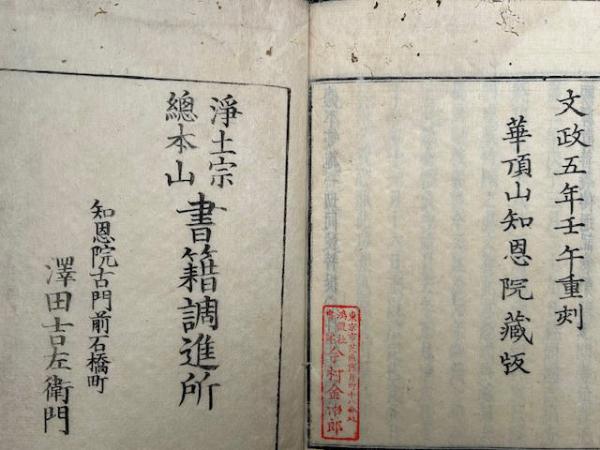 文政五年壬午重刻
華頂山知恩院藏版
今村金次郎
淨土宗
總本山
書籍調進所
知恩院古門前石橋町
澤田吉左衛門